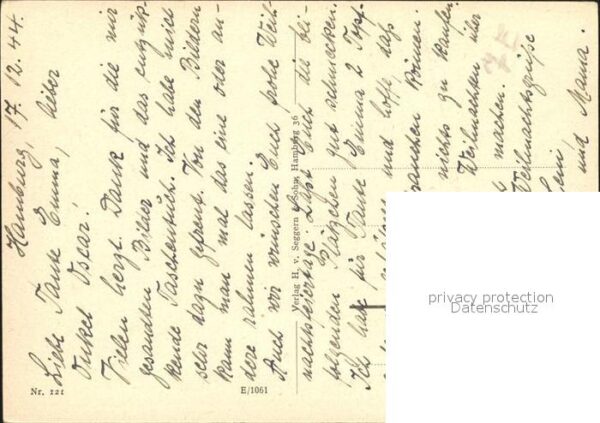 Hamburg, 17. 12. 44.
Liebe Tante Emma, lieber
Onkel Oscar!
Vielen herzl. Dank für die mir
gesandten Bilder und das entzük-
kende Taschentuch. Ich habe mich
sehr dazu gefreut. Von den Bildern
kann man mal das eine oder an-
dere rahmen lassen.
Auch wir wünschen Euch frohe Weih-
nachtsfeiertage. Laßt Euch die bei-
folgenden Plätzchen gut schmecken.
Ich habe für Tante Emma 2 Topf-
und hofft daß
brauchen können.
nichts zu kaufen
Weihnachten über
machen.
Weihnachtsgrüße
und Mama.
Verlag H. v. Seggern & Sohn, Hamburg 36
Nr. 121
E/1061
privacy protection
Datenschutz